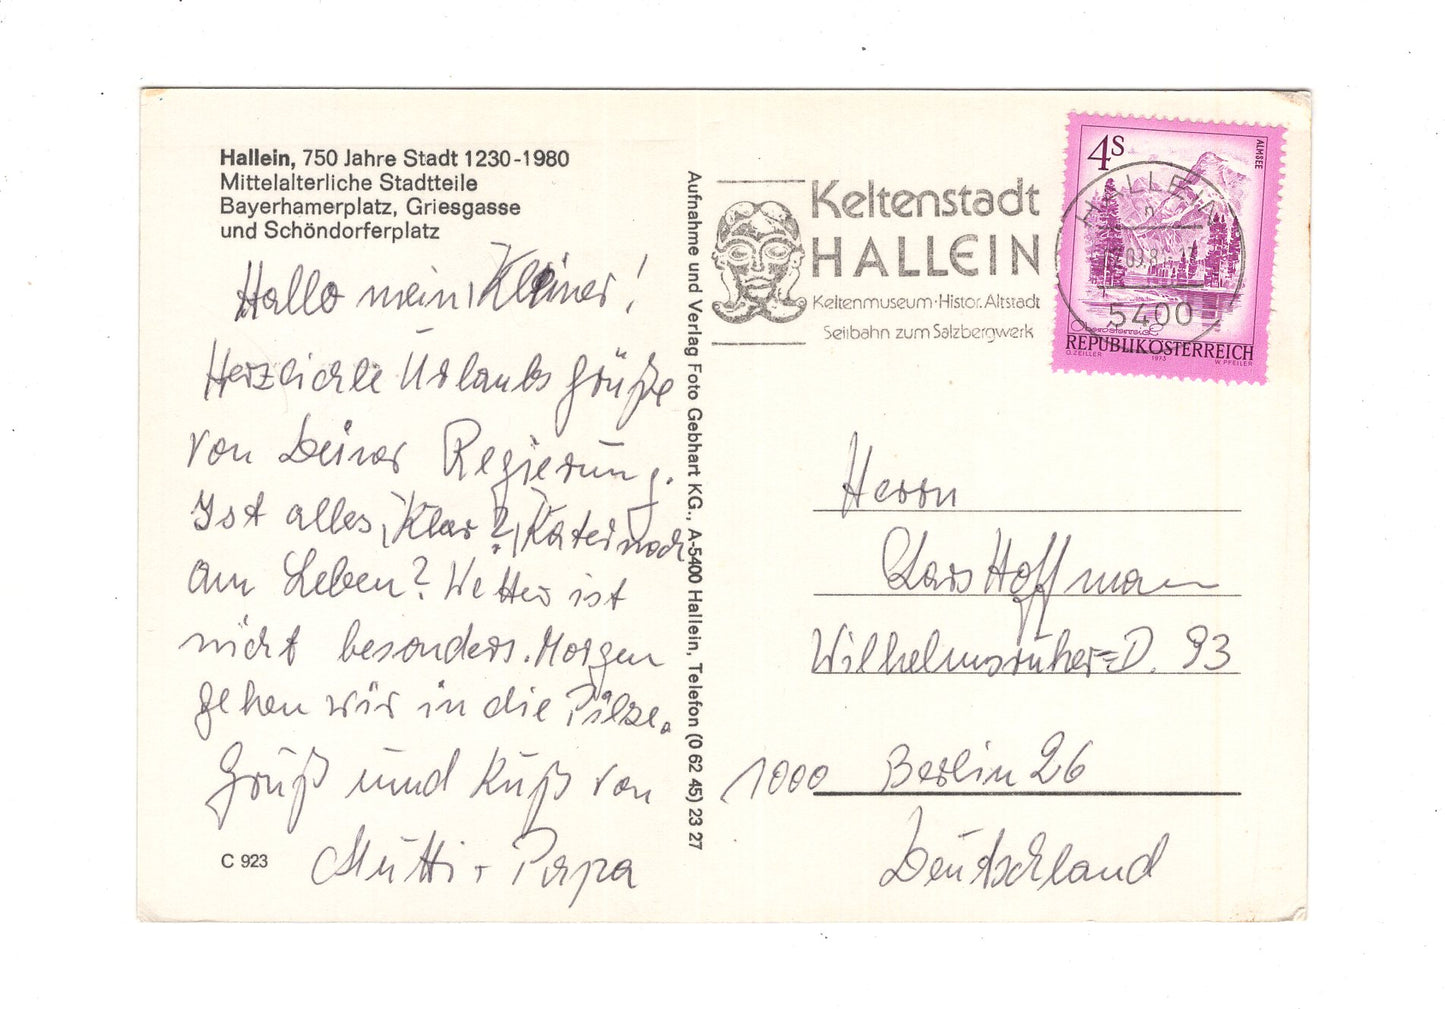 Hallein, 750 Jahre Stadt 1230-1980
Mittelalterliche Stadtteile
Bayerhamerplatz, Griesgasse
und Schöndorferplatz
Hallo mein Kleiner!
Herzliche Urlaubsgrüße
von Deiner Regierung.
Ist alles Klar? Kater noch
am Leben? Wetter ist
nicht besonders. Morgen
gehen wir in die Pilze.
Gruß und Kuß von
Mutti + Papa
C 923
Aufnahme und Verlag Foto Gebhart KG., A-5400 Hallein, Telefon (0 62 45) 23 27
Keltenstadt
HALLEIN
Keltenmuseum·Histor. Altstadt
Seilbahn zum Salzbergwerk
4S
ALMSEE
HALLEIN
5400
Oberösterreich
REPUBLIK ÖSTERREICH
O. ZEILLER 1973 W. PFEILER
Herrn
Lars Hoffmann
Wilhelmsruher=D. 93
1000 Berlin 26
Deutschland